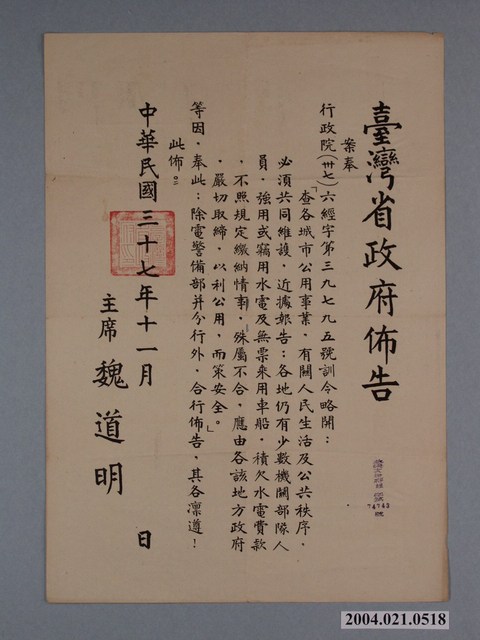 臺灣省政府佈告
案奉
行政院(卅七)六經字第三九七九五號訓令略開：
「查各城市公用事業，有關人民生活及公共秩序，
必須共同維護，近據報告：各地仍有少數機關部隊人
員，強用或竊用水電及無票乘用車船，積欠水電費款
，不照規定繳納情事，殊屬不合，應由各該地方政府
，嚴切取締，以利公用，而策安全。」
等因，奉此：除電警備部并分行外，合行佈告，其各凜遵！
此佈。
中華民國三十七年十一月 日
主席 魏道明
74743
號
2004.021.0518